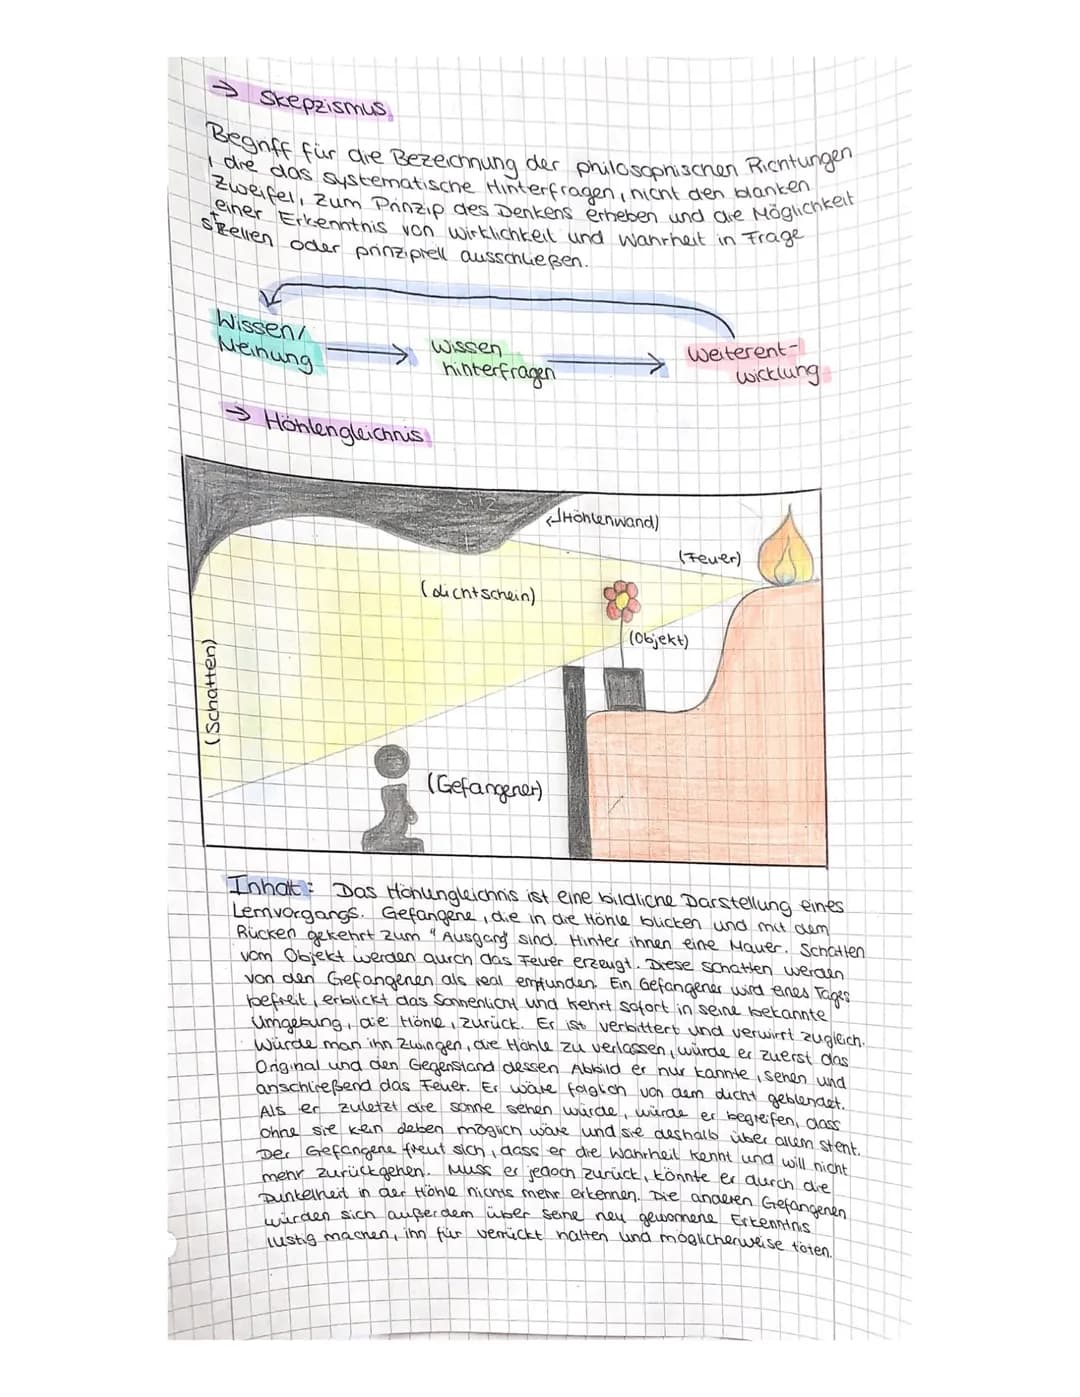 → Skepzismus
Begriff für die Bezeichnung der philosophischen Richtungen
, die das systematische Hinterfragen, nicht den blanken
Zweifel, zum Prinzip des Denkens erheben und die Möglichkeit
einer Erkenntnis von Wirklichkeit und Wahrheit in Frage
stellen oder prinzipiell ausschließen.
Wissen/
Meinung
Wissen
hinterfragen
Weiterent-
wicklung
→ Höhlengleichnis
(Höhlenwand)
(Feuer)
(Lichtschein)
(Objekt)
(Schatten)
(Gefangener)
Inhalt: Das Höhlengleichnis ist eine bildliche Darstellung eines
Lernvorgangs. Gefangene, die in die Höhle blicken und mit dem
Rücken gekehrt zum "Ausgang" sind. Hinter ihnen eine Mauer. Schatten
vom Objekt werden durch das Feuer erzeugt. Diese Schatten werden
von den Gefangenen als real empfunden. Ein Gefangener wird eines Tages
befreit, erblickt das Sonnenlicht und kehrt sofort in seine bekannte
Umgebung, die Höhle, zurück. Er ist verbittert und verwirrt zugleich.
Würde man ihn zwingen, die Höhle zu verlassen, würde er zuerst das
Original und den Gegenstand dessen Abbild er nur kannte, sehen und
anschließend das Feuer. Er wäre folglich von dem Licht geblendet.
Als er zuletzt die Sonne sehen würde, würde er begreifen, dass
ohne sie kein Leben möglich wäre und sie deshalb über allem steht.
Der Gefangene freut sich, dass er die Wahrheit kennt und will nicht
mehr zurückgehen. Muss er jedoch zurück, könnte er durch die
Dunkelheit in der Höhle nichts mehr erkennen. Die anderen Gefangenen
würden sich außerdem über seine neu gewonnene Erkenntnis
lustig machen, ihn für verrückt halten und möglicherweise töten.